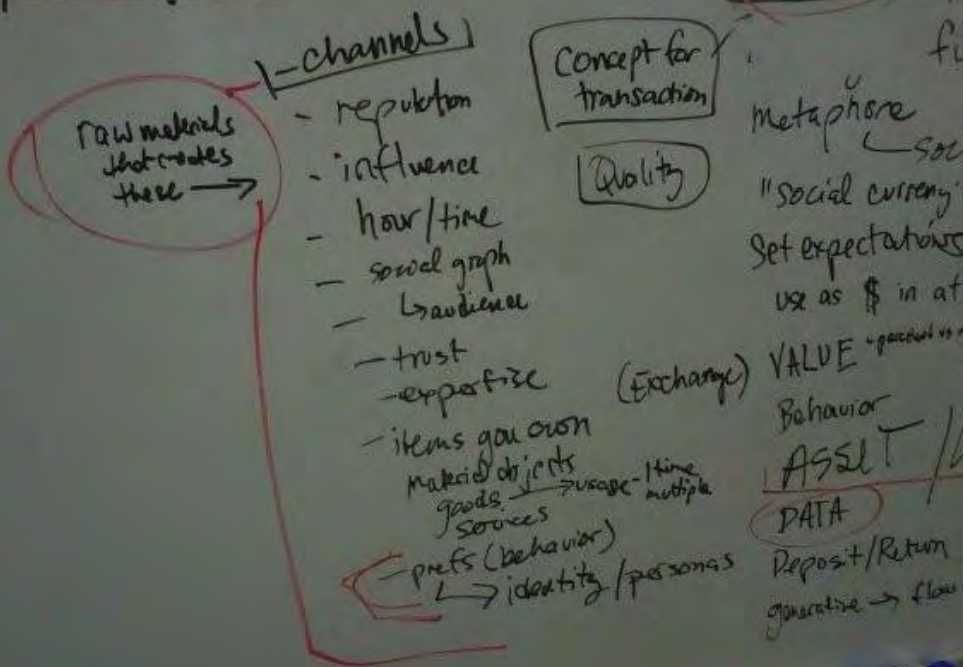 raw materials
that creates
these →
- channels
- reputation
- influence
- hour/time
- social graph
- ↳ audience
- trust
- expertise
- items you own
material objects
goods → usage - 1 time
multiple
services
- prefs (behavior)
↳ identity/personas
Concept for
transaction
Quality
(Exchange)
fu
metaphore
soc
"social curreny
Set expectations
use as $ in at
VALUE
Behavior
ASSET
DATA
Deposit/Return
generative → flow